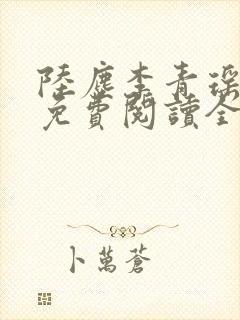 陸塵李青瑤
免費閱讀全
卜萬蒼